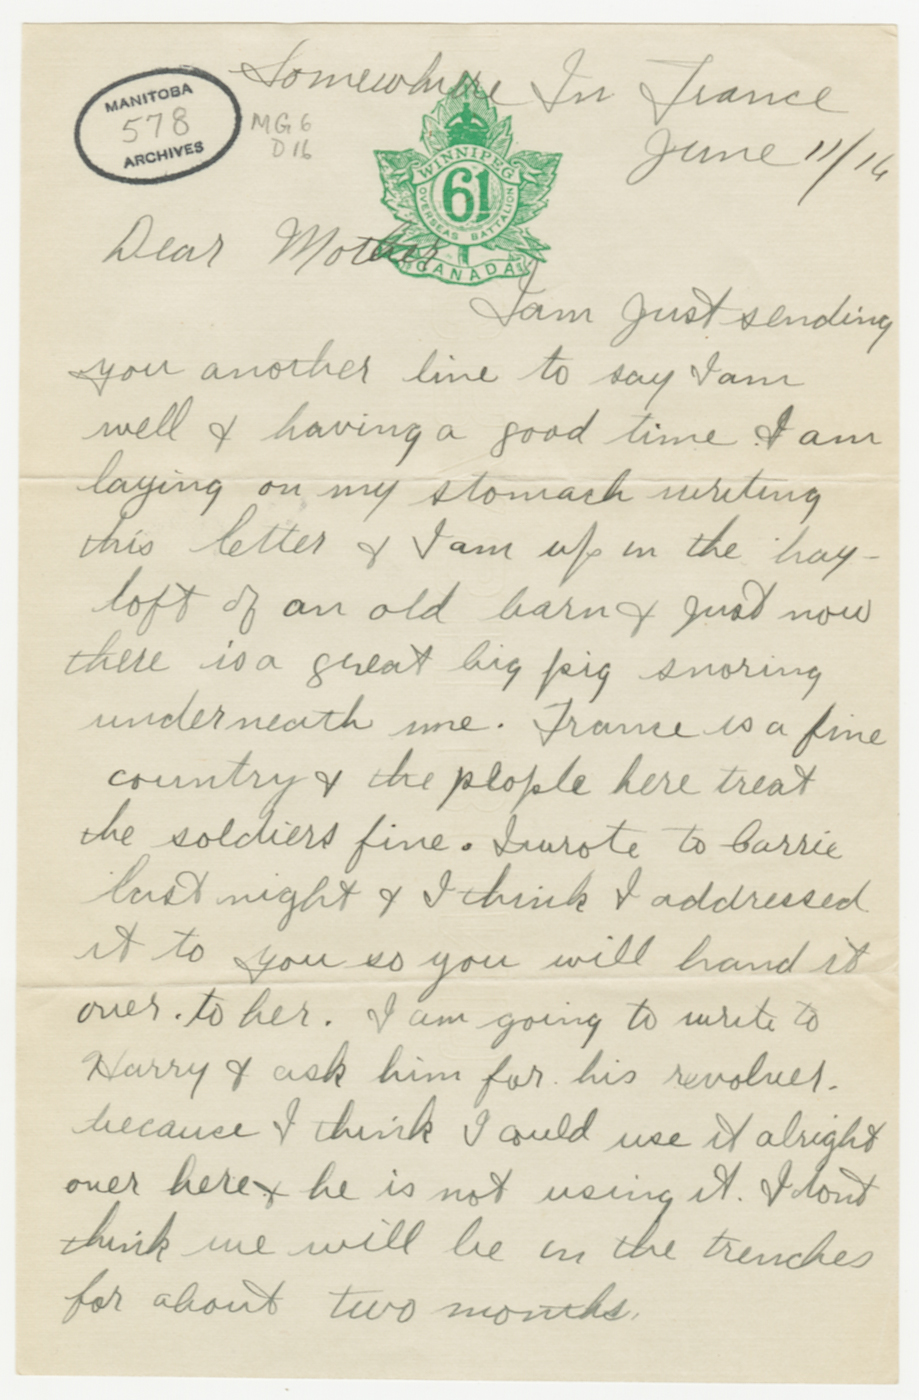 Somewhere In France
MANITOBA
578
ARCHIVES
MG6
D16
June 11/16
WINNIPEG
61
OVERSEAS BATTALION
CANADA
Dear Mother
I am just sending
you another line to say I am
well & having a good time. I am
laying on my stomach writing
this letter & I am up in the hay-
loft of an old barn & just now
there is a great big pig snoring
underneath me. France is a fine
country & the people here treat
the soldiers fine. I wrote to Carrie
last night & I think I addressed
it to you so you will hand it
over. to her. I am going to write to
Harry & ask him for his revolver.
because I think I could use it alright
over here & he is not using it. I dont
think we will be in the trenches
for about two months.